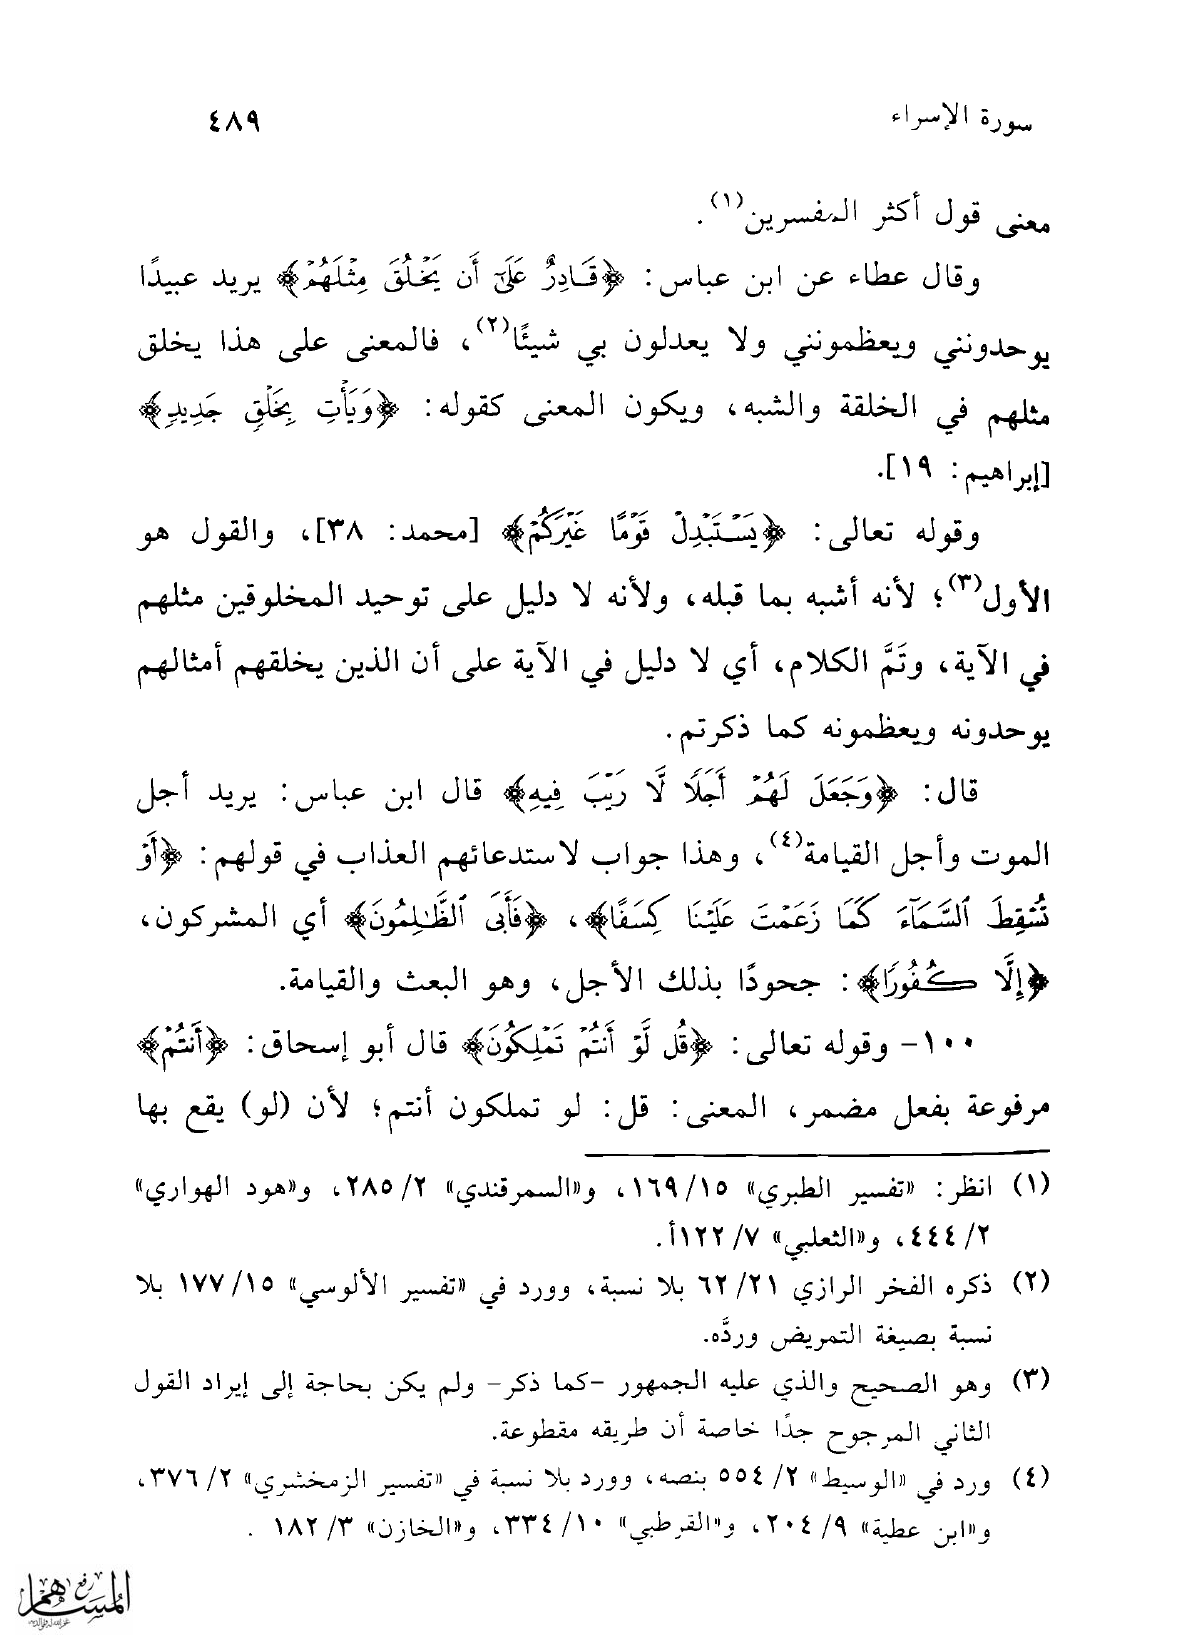 سورة الإسراء ٤٨٩
معنى قول أكثر المفسرين(١).
وقال عطاء عن ابن عباس: ﴿قَادِرٌ عَلَىٰٓ أَن يَخْلُقَ مِثْلَهُمْ﴾ يريد عبيدًا
يوحدونني ويعظمونني ولا يعدلون بي شيئًا(٢)، فالمعنى على هذا يخلق
مثلهم في الخلقة والشبه، ويكون المعنى كقوله: ﴿وَيَأْتِ بِخَلْقٍ جَدِيدٍ﴾
[إبراهيم: ١٩].
وقوله تعالى: ﴿يَسْتَبْدِلْ قَوْمًا غَيْرَكُمْ﴾ [محمد: ٣٨]، والقول هو
الأول(٣)؛ لأنه أشبه بما قبله، ولأنه لا دليل على توحيد المخلوقين مثلهم
في الآية، وتَمَّ الكلام، أي لا دليل في الآية على أن الذين يخلقهم أمثالهم
يوحدونه ويعظمونه كما ذكرتم.
قال: ﴿وَجَعَلَ لَهُمْ أَجَلًا لَّا رَيْبَ فِيهِ﴾ قال ابن عباس: يريد أجل
الموت وأجل القيامة(٤)، وهذا جواب لاستدعائهم العذاب في قولهم: ﴿أَوْ
تُسْقِطَ ٱلسَّمَآءَ كَمَا زَعَمْتَ عَلَيْنَا كِسَفًا﴾، ﴿فَأَبَى ٱلظَّٰلِمُونَ﴾ أي المشركون،
﴿إِلَّا كُفُورًا﴾: جحودًا بذلك الأجل، وهو البعث والقيامة.
١٠٠- وقوله تعالى: ﴿قُل لَّوْ أَنتُمْ تَمْلِكُونَ﴾ قال أبو إسحاق: ﴿أَنتُمْ﴾
مرفوعة بفعل مضمر، المعنى: قل: لو تملكون أنتم؛ لأن (لو) يقع بها
(١) انظر: «تفسير الطبري» ١٥/ ١٦٩، و«السمرقندي» ٢/ ٢٨٥، و«هود الهواري»
٢/ ٤٤٤، و«الثعلبي» ٧/ ١٢٢أ.
(٢) ذكره الفخر الرازي ٢١/ ٦٢ بلا نسبة، وورد في «تفسير الألوسي» ١٥/ ١٧٧ بلا
نسبة بصيغة التمريض وردَّه.
(٣) وهو الصحيح والذي عليه الجمهور -كما ذكر- ولم يكن بحاجة إلى إيراد القول
الثاني المرجوح جدًا خاصة أن طريقه مقطوعة.
(٤) ورد في «الوسيط» ٢/ ٥٥٤ بنصه، وورد بلا نسبة في «تفسير الزمخشري» ٢/ ٣٧٦،
و«ابن عطية» ٩/ ٢٠٤، و«القرطبي» ١٠/ ٣٣٤، و«الخازن» ٣/ ١٨٢ .
رفع
المساهم